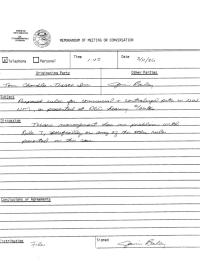 MEMORANDUM OF MEETING OR CONVERSATION
Telephone Personal Time 1:05 Date
Originating Party Other Parties
Tom Chandler - Texaco Inc. Jami Bailey
Subject
Proposed rules for commercial + centralized pits in
NM, as presented at OCC hearing
Discussion
Texaco management has no problem with
Rule 7, specifically or any of the other rules
presented in this case.
Conclusions or Agreements
Distribution Files Signed Jami Bailey